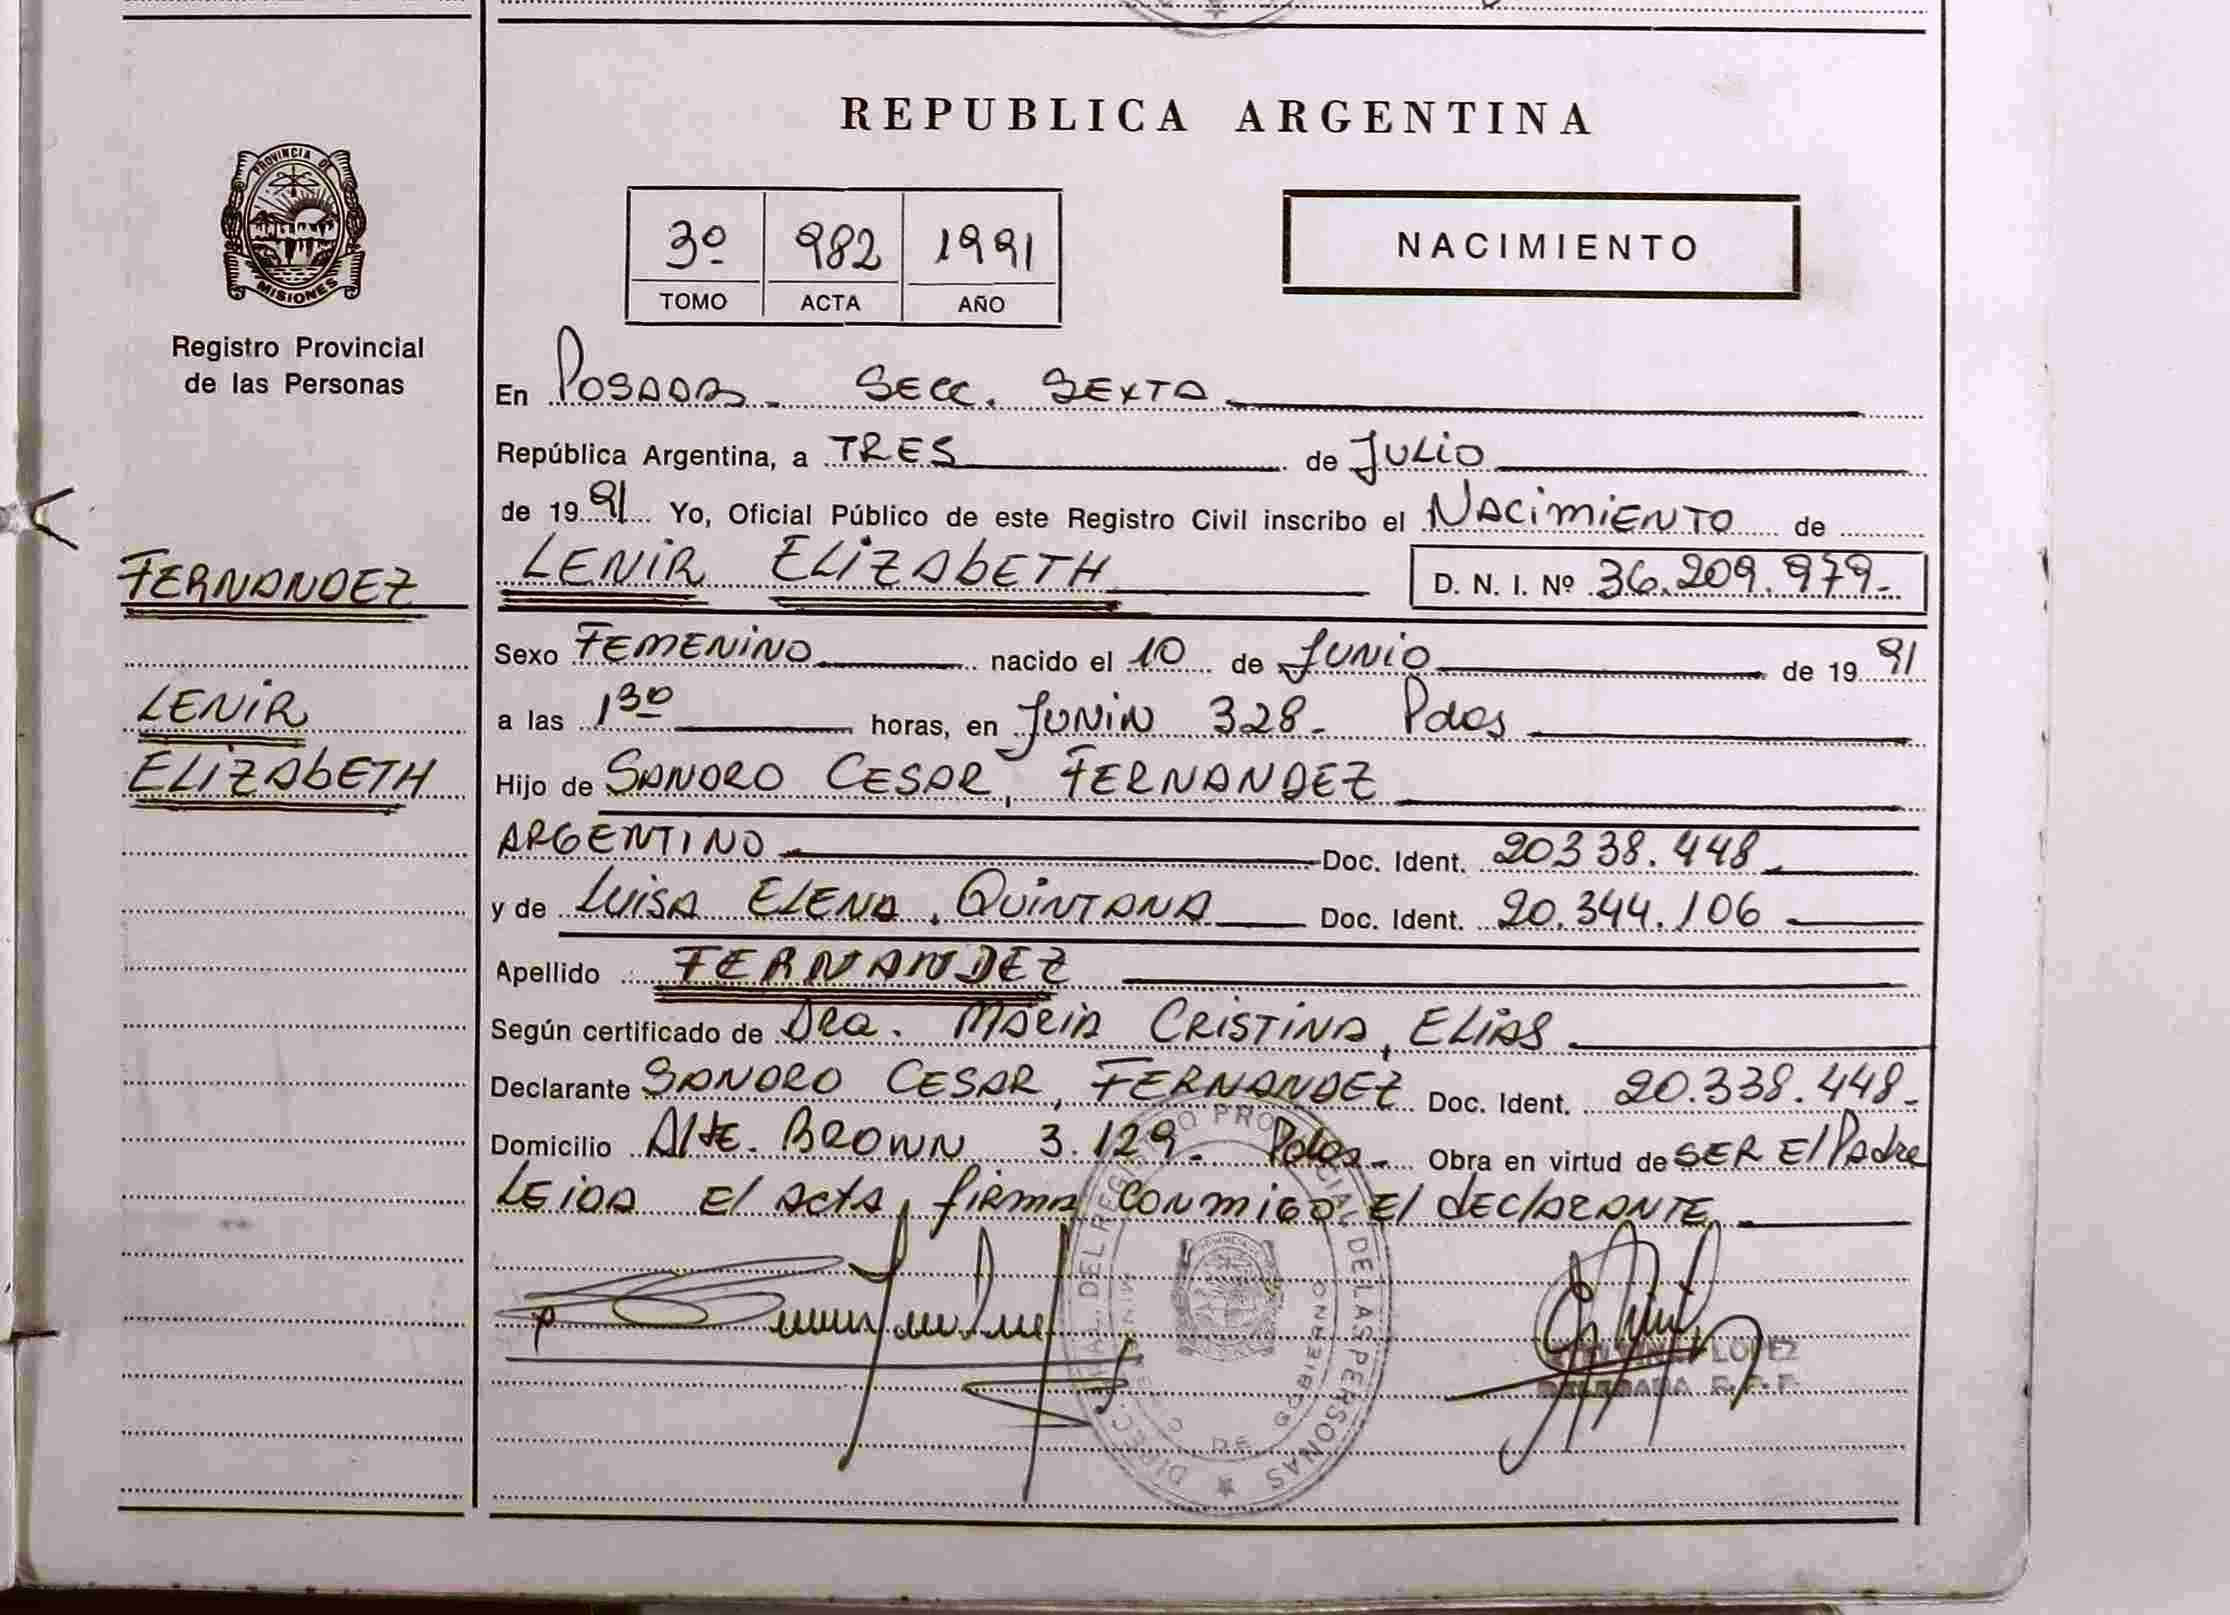 REPUBLICA ARGENTINA
PROVINCIA DE
MISIONES
Registro Provincial
de las Personas
3º 982 1991
TOMO ACTA AÑO
NACIMIENTO
En POSADAS - SECC. SEXTA
República Argentina, a TRES de JULIO
de 1991 Yo, Oficial Público de este Registro Civil inscribo el NACIMIENTO de
FERNANDEZ
LENIR
ELIZABETH
LENIR ELIZABETH D. N. I. Nº 36.209.979.-
Sexo FEMENINO nacido el 10 de JUNIO de 1991
a las 1 30 horas, en JUNIN 328 - Pdas
Hijo de SANDRO CESAR, FERNANDEZ
ARGENTINO Doc. Ident. 20338.448
y de LUISA ELENA, QUINTANA Doc. Ident. 20.344.106
Apellido FERNANDEZ
Según certificado de Dra. MARIA CRISTINA, ELIAS
Declarante SANDRO CESAR, FERNANDEZ Doc. Ident. 20.338.448-
Domicilio Alte. BROWN 3.129 - Pdas - Obra en virtud de SER El Padre
LEIDA El ACTA, firma CONMIGO El dEClARANTE
DIREC. GRAL. DEL REGISTRO PROVINCIAL DE LAS PERSONAS
MINISTERIO DE GOBIERNO
LOPEZ
DELEGADA R.P.P.